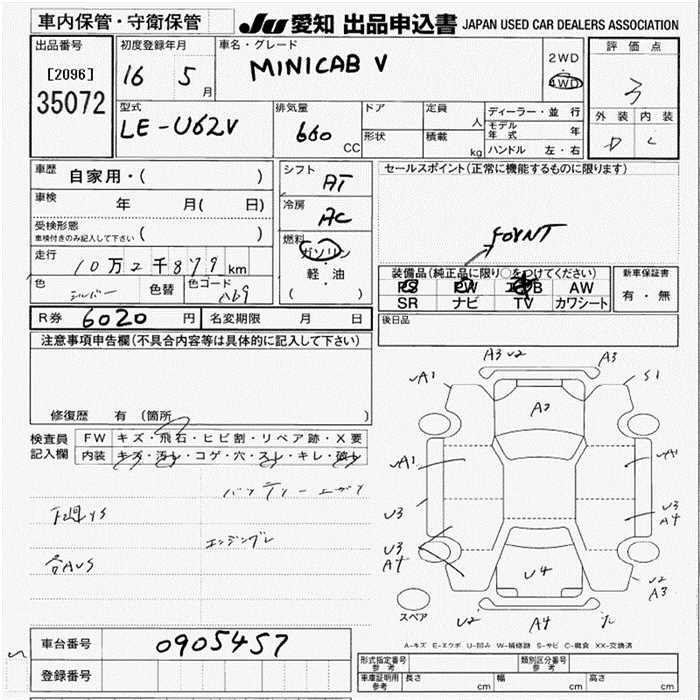 車内保管・守衛保管
JU 愛知 出品申込書 JAPAN USED CAR DEALERS ASSOCIATION
出品番号 初度登録年月 車名・グレード 2WD 評価点
[2096] 16 5月 MINICAB V 4WD 3
35072
型式 排気量 ドア 定員 人 ディーラー・並行 外装 内装
LE-U62V 660 CC 形状 積載 kg モデル年式 年 D C
ハンドル 左・右
車歴 自家用・( ) シフト AT セールスポイント(正常に機能するものに限ります)
車検 年 月( 日) 冷房 AC
受検形態 車検付きのみ記入して下さい ( ) 燃料 ガソリン
走行 10万2千879km 軽・油
( )
装備品(純正品に限り○をつけてください) 新車保証書
色 シルバー 色替 色コード PS PW AW 有・無
SR ナビ TV カワシート
R券 6020円 名変期限 月 日 後日品
注意事項申告欄(不具合内容等は具体的に記入して下さい)
修復歴 有(箇所 )
検査員記入欄 FW キズ・飛石・ヒビ割・リペア跡・X要
内装 キズ・汚レ・コゲ・穴・スレ・キレ・破レ
A3 U2 A3
A1 S1
A2
A1 A1
U3 U3 A4
U3 A4
U4 U2 A3
スペア U2 A4
A-キズ E-エクボ U-凹み W-補修跡 S-サビ C-腐食 XX-交換済
下廻りS
各AUS
エンジンブレ
車台番号 0905457
登録番号
形式指定番号 参考 類別区分番号 参考
車庫証明用 参考 長さ cm 幅 cm 高さ cm